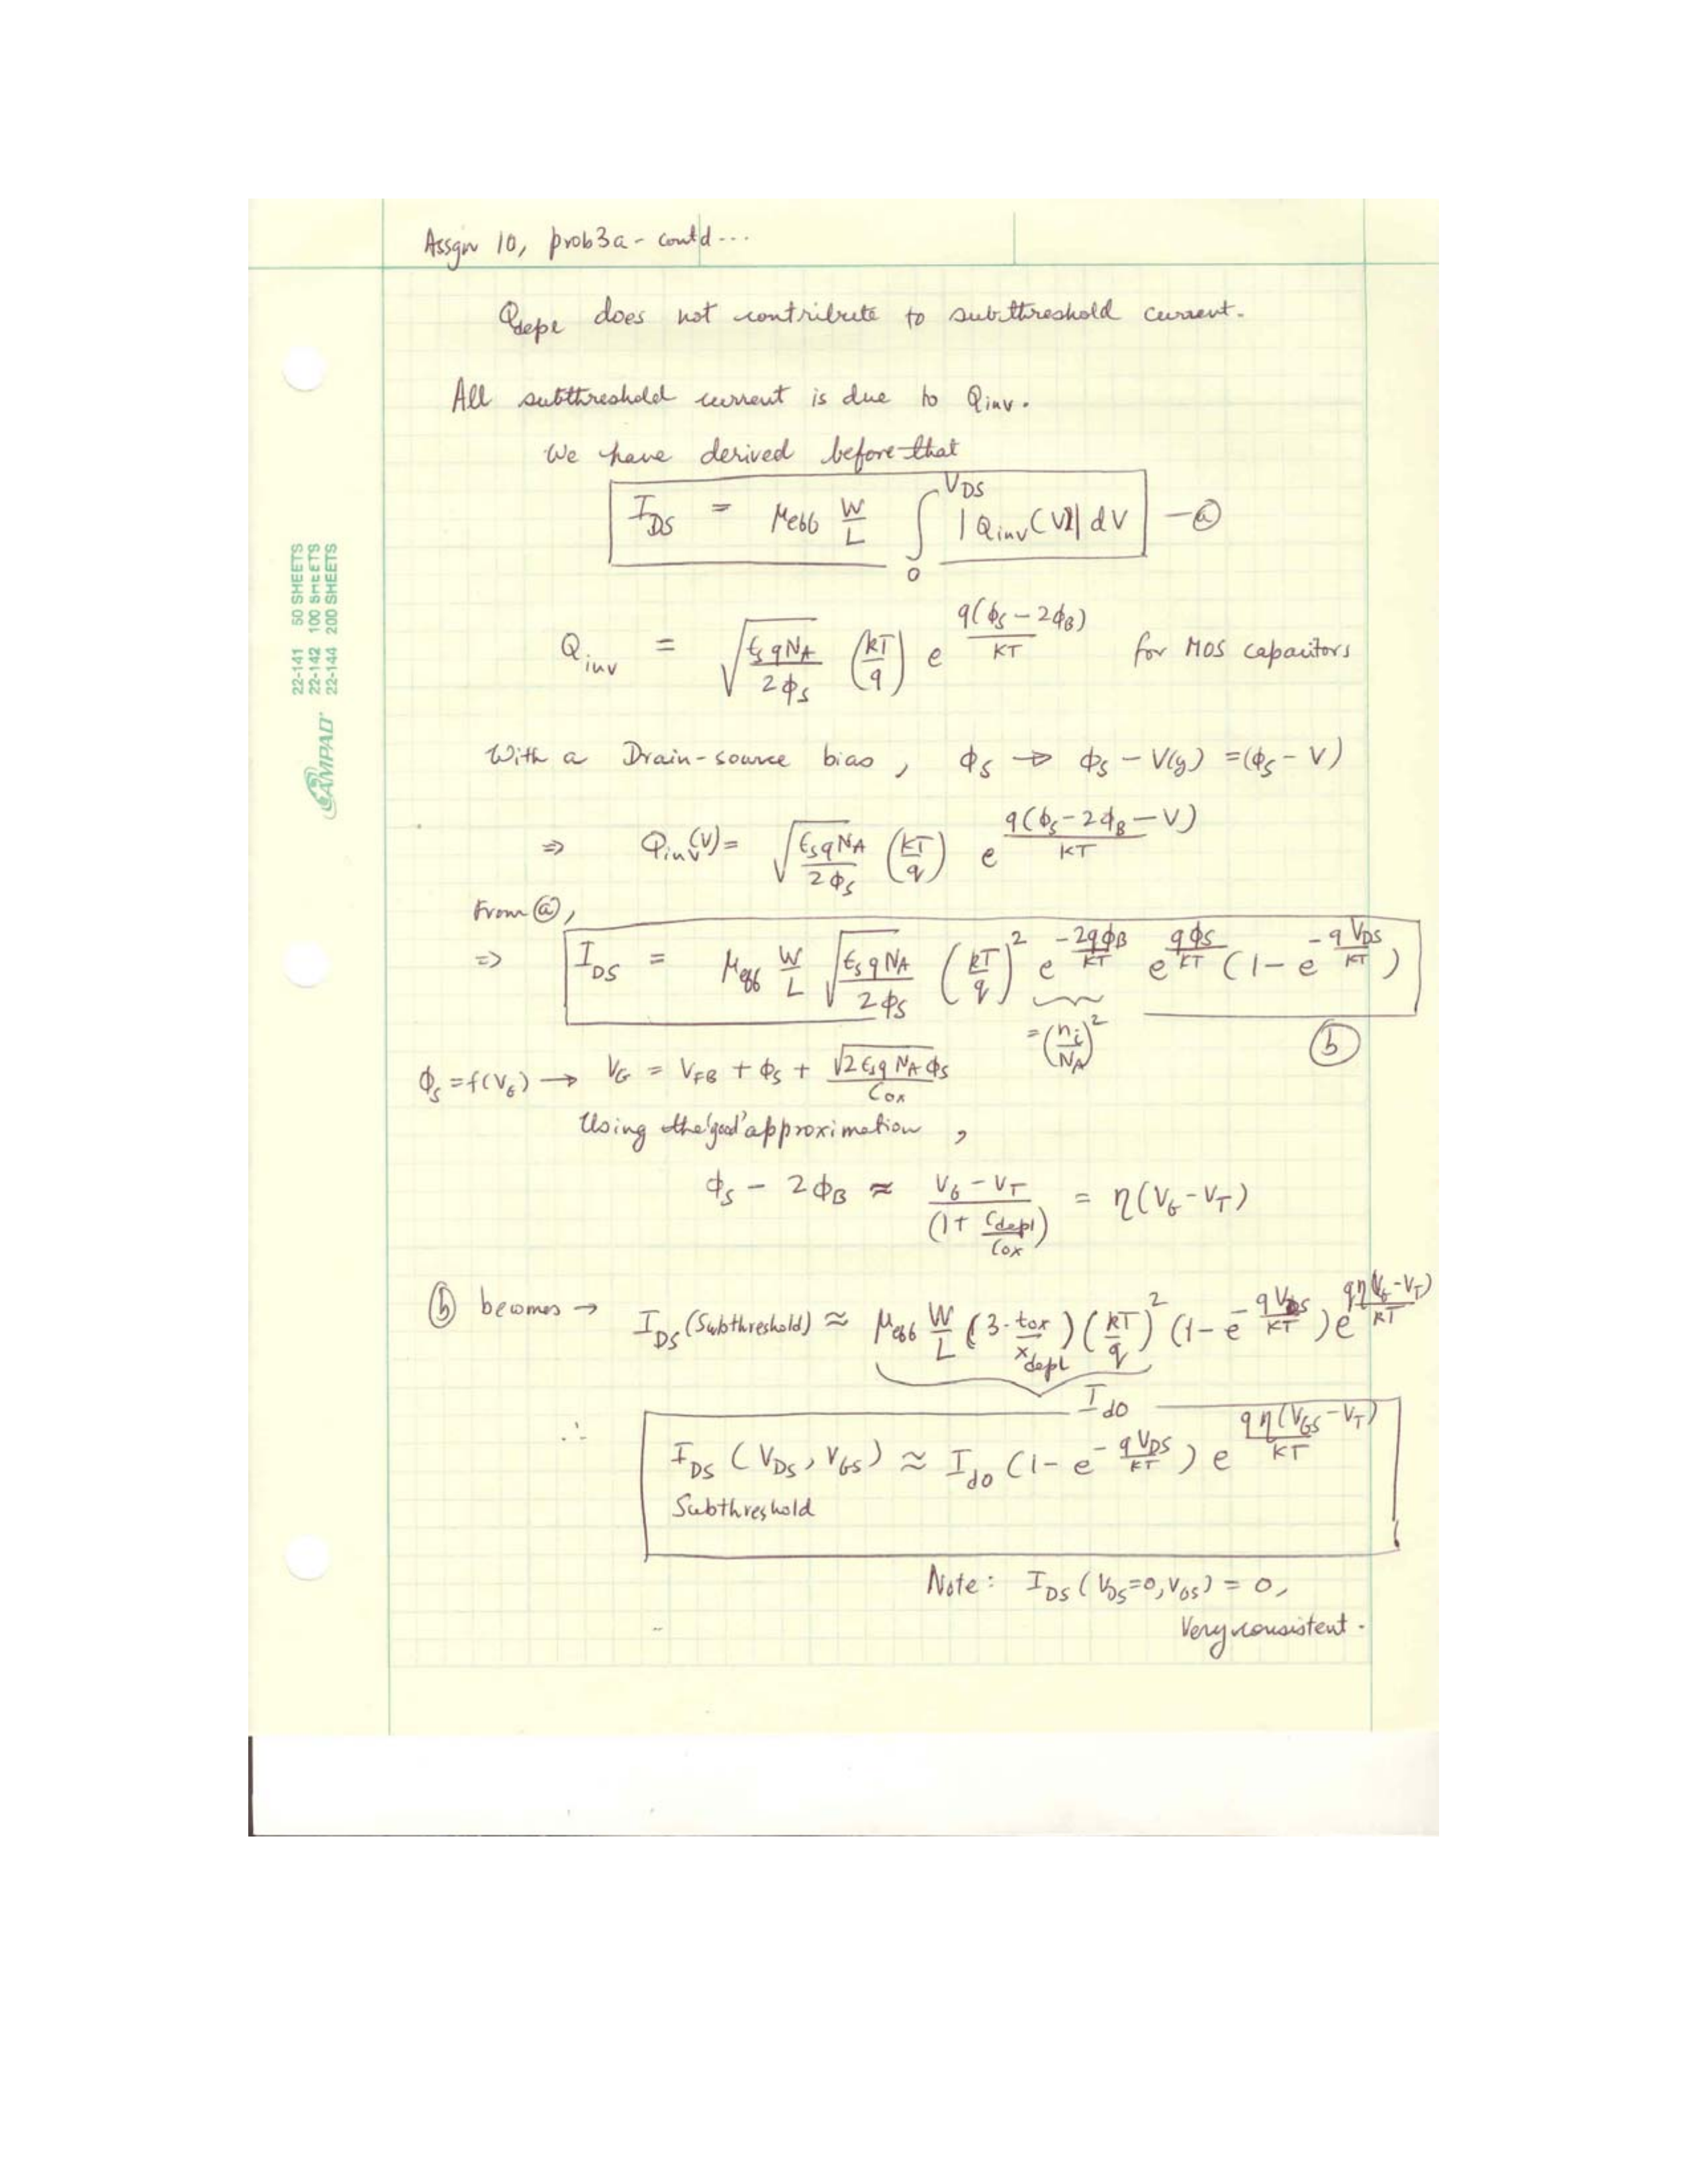 Assgn 10, prob 3a - contd...
Qdepl does not contribute to subthreshold current.
All subthreshold current is due to Qinv.
We have derived before that
I_DS = μeff W/L ∫_0^{V_DS} |Qinv(V)| dV —ⓐ
Q_inv = √(ϵs q N_A / 2ϕs) (kT/q) e^{q(ϕs − 2ϕB)/KT} for MOS capacitors
With a Drain-source bias, ϕs → ϕs − V(y) = (ϕs − V)
⇒ Qinv(V) = √(ϵs q N_A / 2ϕs) (kT/q) e^{q(ϕs − 2ϕB − V)/KT}
From ⓐ,
⇒ I_DS = μeff W/L √(ϵs q N_A / 2ϕs) (kT/q)^2 e^{−2qϕB/KT} e^{qϕs/KT} (1 − e^{−qV_DS/KT})
= (ni/N_A)^2 ⓑ
ϕs = f(V_G) → V_G = V_FB + ϕs + √(2ϵs q N_A ϕs)/Cox
Using the 'good' approximation,
ϕs − 2ϕB ≈ (V_G − V_T)/(1 + Cdepl/Cox) = η(V_G − V_T)
ⓑ becomes → I_DS (Subthreshold) ≈ μeff W/L (3·tox/xdepl) (kT/q)^2 (1 − e^{−qV_DS/KT}) e^{qη(V_G − V_T)/KT}
I_do
∴ I_DS (V_DS, V_GS) ≈ I_do (1 − e^{−qV_DS/KT}) e^{qη(V_GS − V_T)/KT}
Subthreshold
Note: I_DS (V_DS=0, V_GS) = 0,
Very consistent.
22-141 50 SHEETS
22-142 100 SHEETS
22-144 200 SHEETS
AMPAD